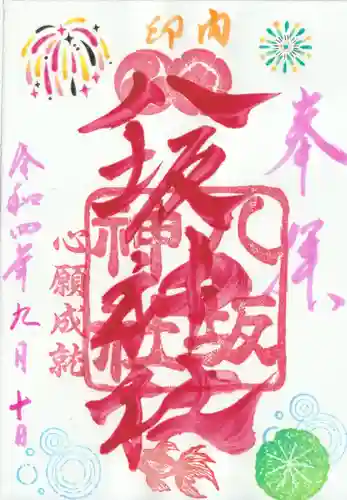 内印
奉拝
八坂神社
八坂神社
心願成就
令和四年九月十日